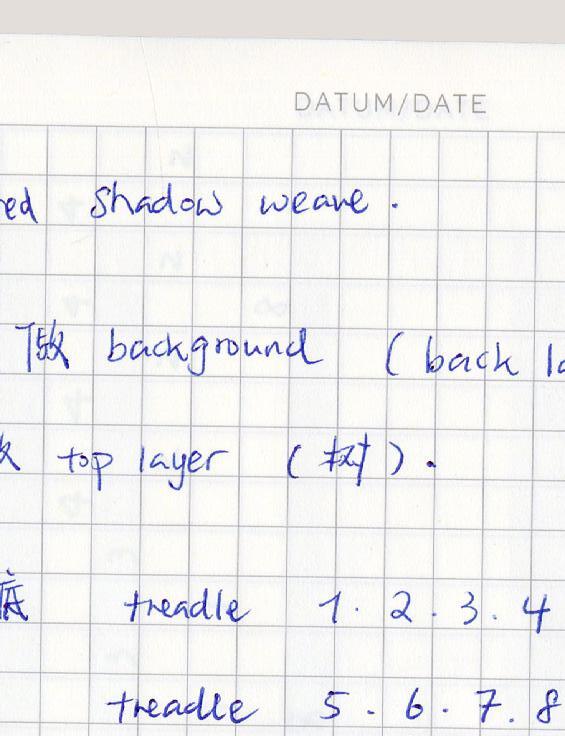 DATUM/DATE
ed shadow weave.
做 background ( back la
top layer ( 村 ).
底 treadle 1. 2. 3. 4
treadle 5. 6. 7. 8